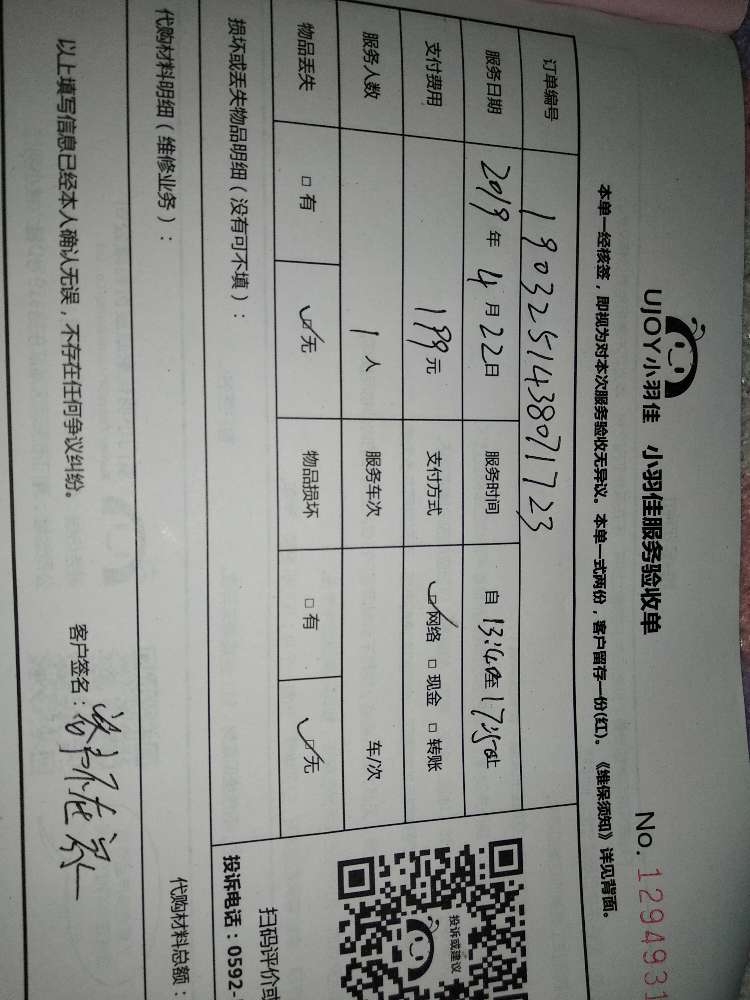 UJOY小羽佳 小羽佳服务验收单 No. 1294931
本单一经核签，即视为对本次服务验收无异议。本单一式两份，客户留存一份(红)。《维保须知》详见背面。
订单编号 1903251438071723
服务日期 2019年4月22日 服务时间 自 13:40至17:50止
支付费用 199元 支付方式 ☑网络 □现金 □转账
服务人数 1人 服务车次 车/次
物品丢失 □有 ☑无 物品损坏 □有 ☑无
损坏或丢失物品明细（没有可不填）：
投诉或建议
扫码评价或
投诉电话：0592-
代购材料明细（维修业务）： 代购材料总额：
以上填写信息已经本人确认无误，不存在任何争议纠纷。 客户签名：